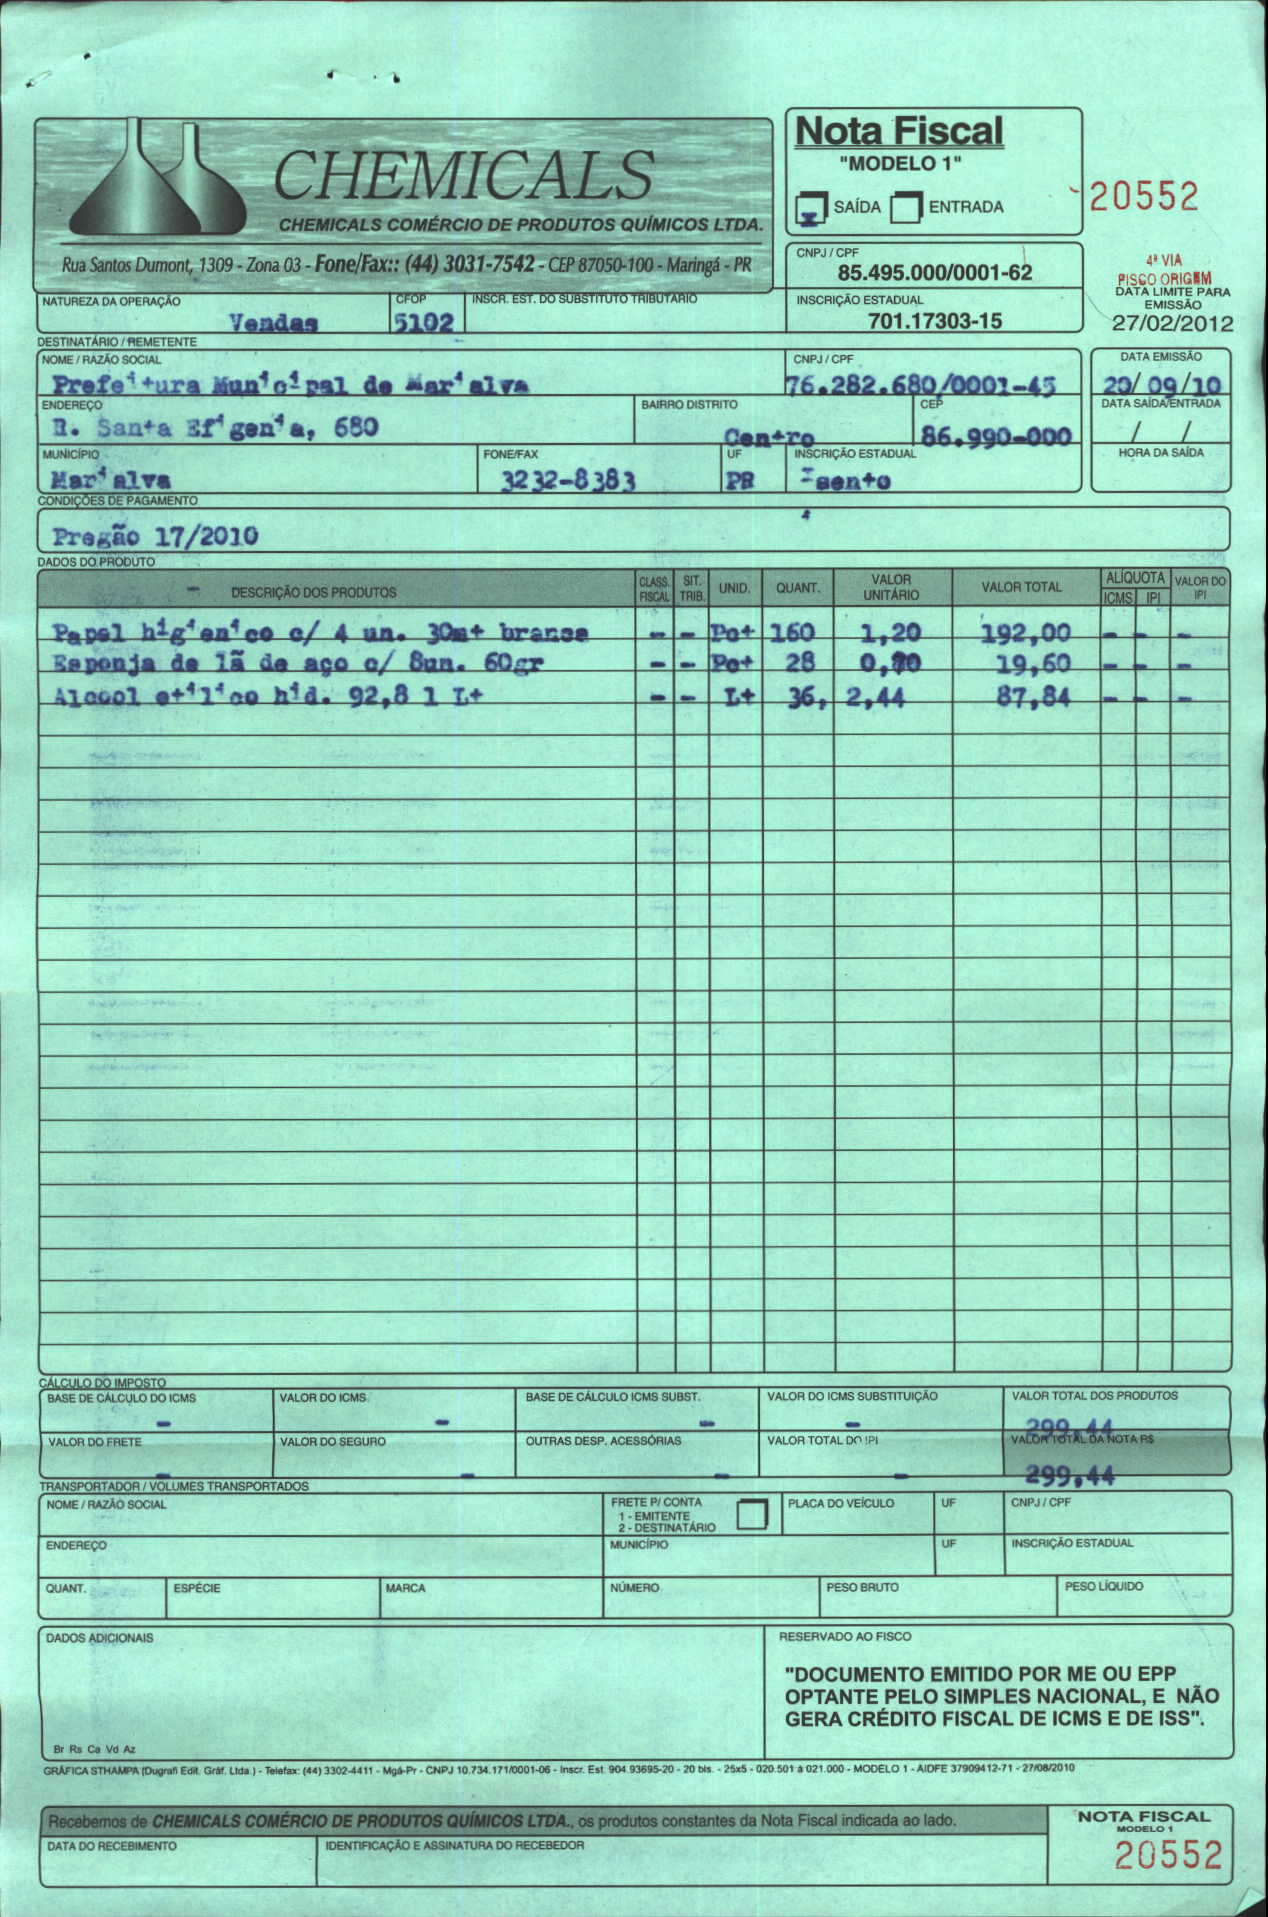 CHEMICALS
CHEMICALS COMÉRCIO DE PRODUTOS QUÍMICOS LTDA.
Rua Santos Dumont, 1309 - Zona 03 - Fone/Fax:: (44) 3031-7542 - CEP 87050-100 - Maringá - PR
Nota Fiscal
"MODELO 1"
X SAÍDA ENTRADA
20552
CNPJ / CPF
85.495.000/0001-62
INSCRIÇÃO ESTADUAL
701.17303-15
4ª VIA
FISCO ORIGEM
DATA LIMITE PARA
EMISSÃO
27/02/2012
NATUREZA DA OPERAÇÃO CFOP INSCR. EST. DO SUBSTITUTO TRIBUTÁRIO
Vendas 5102
DESTINATÁRIO / REMETENTE
NOME / RAZÃO SOCIAL CNPJ / CPF DATA EMISSÃO
Prefeitura Municipal de Marialva 76.282.680/0001-45 20/ 09 /10
ENDEREÇO BAIRRO DISTRITO CEP DATA SAÍDA/ENTRADA
R. Santa Efigenia, 680 Centro 86.990-000 / /
MUNICÍPIO FONE/FAX UF INSCRIÇÃO ESTADUAL HORA DA SAÍDA
Marialva 3232-8383 PR Isento
CONDIÇÕES DE PAGAMENTO
Pregão 17/2010
DADOS DO PRODUTO
DESCRIÇÃO DOS PRODUTOS CLASS. FISCAL SIT. TRIB. UNID. QUANT. VALOR UNITÁRIO VALOR TOTAL ALÍQUOTA ICMS IPI VALOR DO IPI
Papel higienico c/ 4 un. 30mt - - Pct 160 1,20 192,00 - - -
Esponja de lã de aço c/ 8un. 60gr - - Pct 28 0,70 19,60 - - -
Alcool etilico hid. 92,8 1 Lt - - Lt 36, 2,44 87,84 - - -
CÁLCULO DO IMPOSTO
BASE DE CÁLCULO DO ICMS VALOR DO ICMS BASE DE CÁLCULO ICMS SUBST. VALOR DO ICMS SUBSTITUIÇÃO VALOR TOTAL DOS PRODUTOS
- - - - 299,44
VALOR DO FRETE VALOR DO SEGURO OUTRAS DESP. ACESSÓRIAS VALOR TOTAL DO IPI VALOR TOTAL DA NOTA R$
- - - - 299,44
TRANSPORTADOR / VOLUMES TRANSPORTADOS
NOME / RAZÃO SOCIAL FRETE P/ CONTA PLACA DO VEÍCULO UF CNPJ / CPF
1 - EMITENTE
2 - DESTINATÁRIO
ENDEREÇO MUNICÍPIO UF INSCRIÇÃO ESTADUAL
QUANT. ESPÉCIE MARCA NÚMERO PESO BRUTO PESO LÍQUIDO
DADOS ADICIONAIS
RESERVADO AO FISCO
"DOCUMENTO EMITIDO POR ME OU EPP
OPTANTE PELO SIMPLES NACIONAL, E NÃO
GERA CRÉDITO FISCAL DE ICMS E DE ISS".
Br Rs Ca Vd Az
GRÁFICA STHAMPA (Dugrafi Edit. Gráf. Ltda.) - Telefax: (44) 3302-4411 - Mgá-Pr - CNPJ 10.734.171/0001-06 - Inscr. Est. 904.93695-20 - 20 bls. - 25x5 - 020.501 à 021.000 - MODELO 1 - AIDFE 37909412-71 - 27/08/2010
Recebemos de CHEMICALS COMÉRCIO DE PRODUTOS QUÍMICOS LTDA., os produtos constantes da Nota Fiscal indicada ao lado.
DATA DO RECEBIMENTO IDENTIFICAÇÃO E ASSINATURA DO RECEBEDOR
NOTA FISCAL
MODELO 1
20552